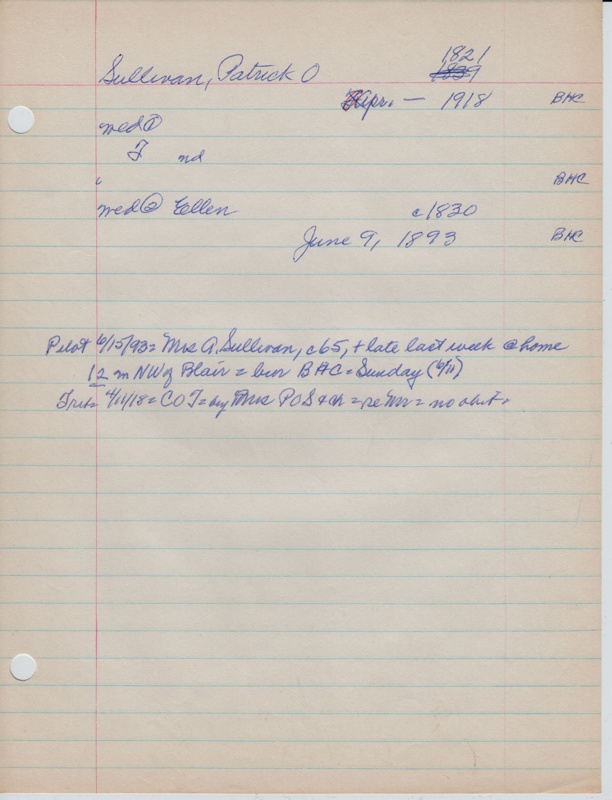 1821
Sullivan, Patrick O 1839
Apr. — 1918 BHC
wed ①
J nd
BHC
wed ② Ellen c1830
June 9, 1893 BHC
Pilot 6/15/93 = Mrs A. Sullivan, c65, + late last week @ home
12 m NW of Blair = bur BHC = Sunday (6/11)
Trib = 4/11/18 = COT = by Mrs POS & ch = re Mr = no obit.